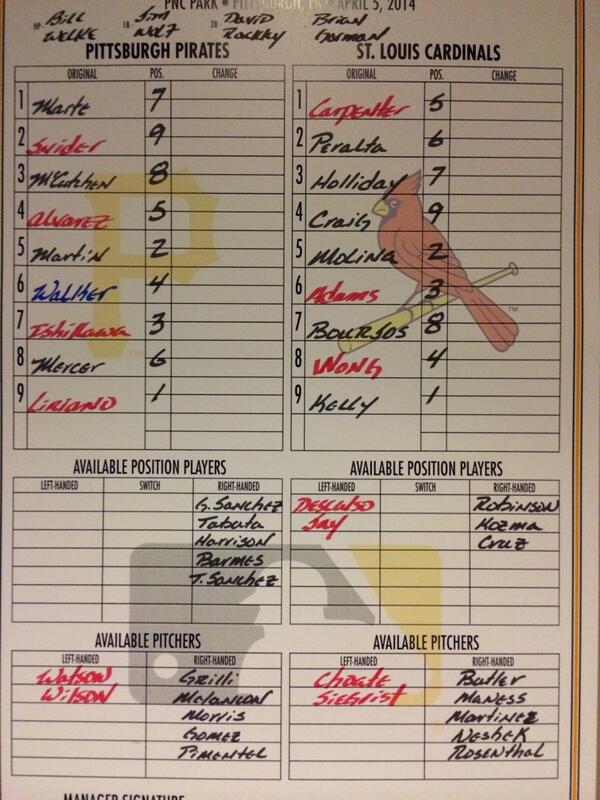 PNC PARK • PITTSBURGH, PA • APRIL 5, 2014
HP Bill Welke 1B Jim Wolf 2B David Rackley Brian Gorman
PITTSBURGH PIRATES
ORIGINAL POS. CHANGE
1 Marte 7
2 Snider 9
3 McCutchen 8
4 Alvarez 5
5 Martin 2
6 Walker 4
7 Ishikawa 3
8 Mercer 6
9 Liriano 1
ST. LOUIS CARDINALS
ORIGINAL POS. CHANGE
1 Carpenter 5
2 Peralta 6
3 Holliday 7
4 Craig 9
5 Molina 2
6 Adams 3
7 Bourjos 8
8 Wong 4
9 Kelly 1
AVAILABLE POSITION PLAYERS
LEFT-HANDED SWITCH RIGHT-HANDED
G. Sanchez
Tabata
Harrison
Barmes
T. Sanchez
AVAILABLE POSITION PLAYERS
LEFT-HANDED SWITCH RIGHT-HANDED
Descalso Robinson
Jay Kozma
Cruz
AVAILABLE PITCHERS
LEFT-HANDED RIGHT-HANDED
Watson Grilli
Wilson Melancon
Morris
Gomez
Pimentel
AVAILABLE PITCHERS
LEFT-HANDED RIGHT-HANDED
Choate Butler
Siegrist Maness
Martinez
Neshek
Rosenthal
MANAGER SIGNATURE